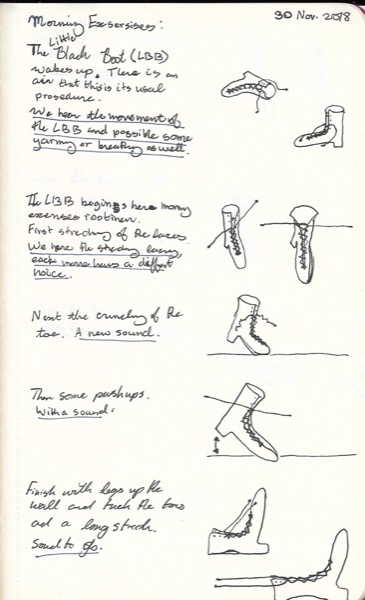 Morning Exsersises:
30 Nov. 2018
The Little Black Boot (LBB)
wakes up. There is an
air that this is its usual
prosedure.
We hear the movement of
the LBB and possible some
yarning or breathing as well.
The LBB begins here morning
exersises
First streching of the laces.
We here the streching laces,
each move has a diffrent
noice.
Next the crunching of the
toe. A new sound.
Then some pushups.
With a sound.
Finish with legs up the
wall and tuch the toes
ad a long strech.
Sound to go.